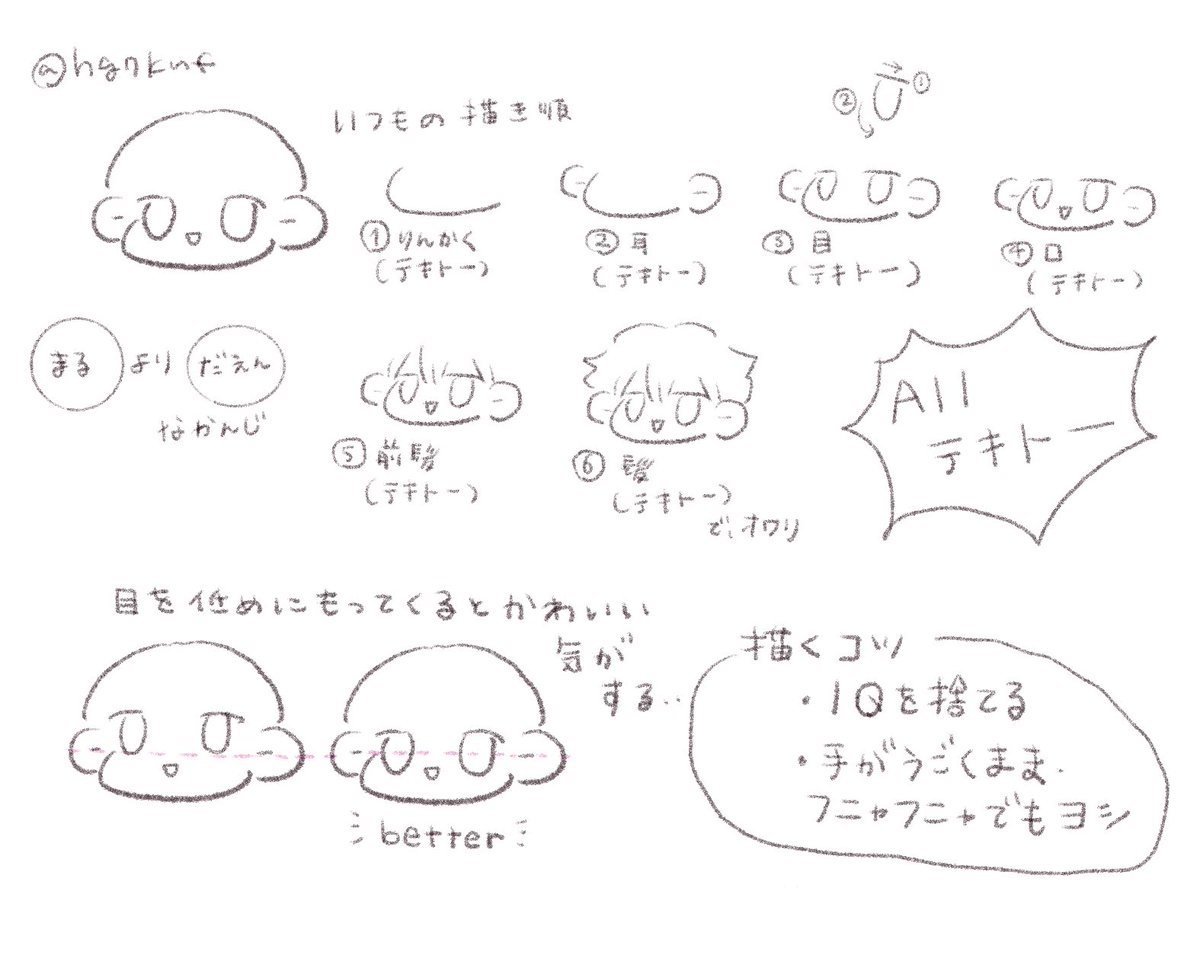 @hgnknf
いつもの描き順
② ①
①りんかく
(テキトー)
②耳
(テキトー)
③目
(テキトー)
④口
(テキトー)
まる より だえん
なかんじ
⑤前髪
(テキトー)
⑥髪
(テキトー)
で、オワリ
All
テキトー
目を低めにもってくるとかわいい
気が
する..
better
描くコツ
・IQを捨てる
・手がうごくまま.
フニャフニャでもヨシ